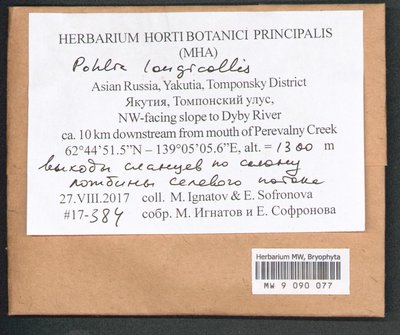 HERBARIUM HORTI BOTANICI PRINCIPALIS
(MHA)
Pohlia longicollis
Asian Russia, Yakutia, Tomponsky District
Якутия, Томпонский улус,
NW-facing slope to Dyby River
ca. 10 km downstream from mouth of Perevalny Creek
62°44'51.5"N – 139°05'05.6"E, alt. = 1300 m
выходы сланцев по склону
ложбины селевого потока
27.VIII.2017 coll. M. Ignatov & E. Sofronova
#17-384 собр. М. Игнатов и Е. Софронова
Herbarium MW, Bryophyta
MW 9 090 077